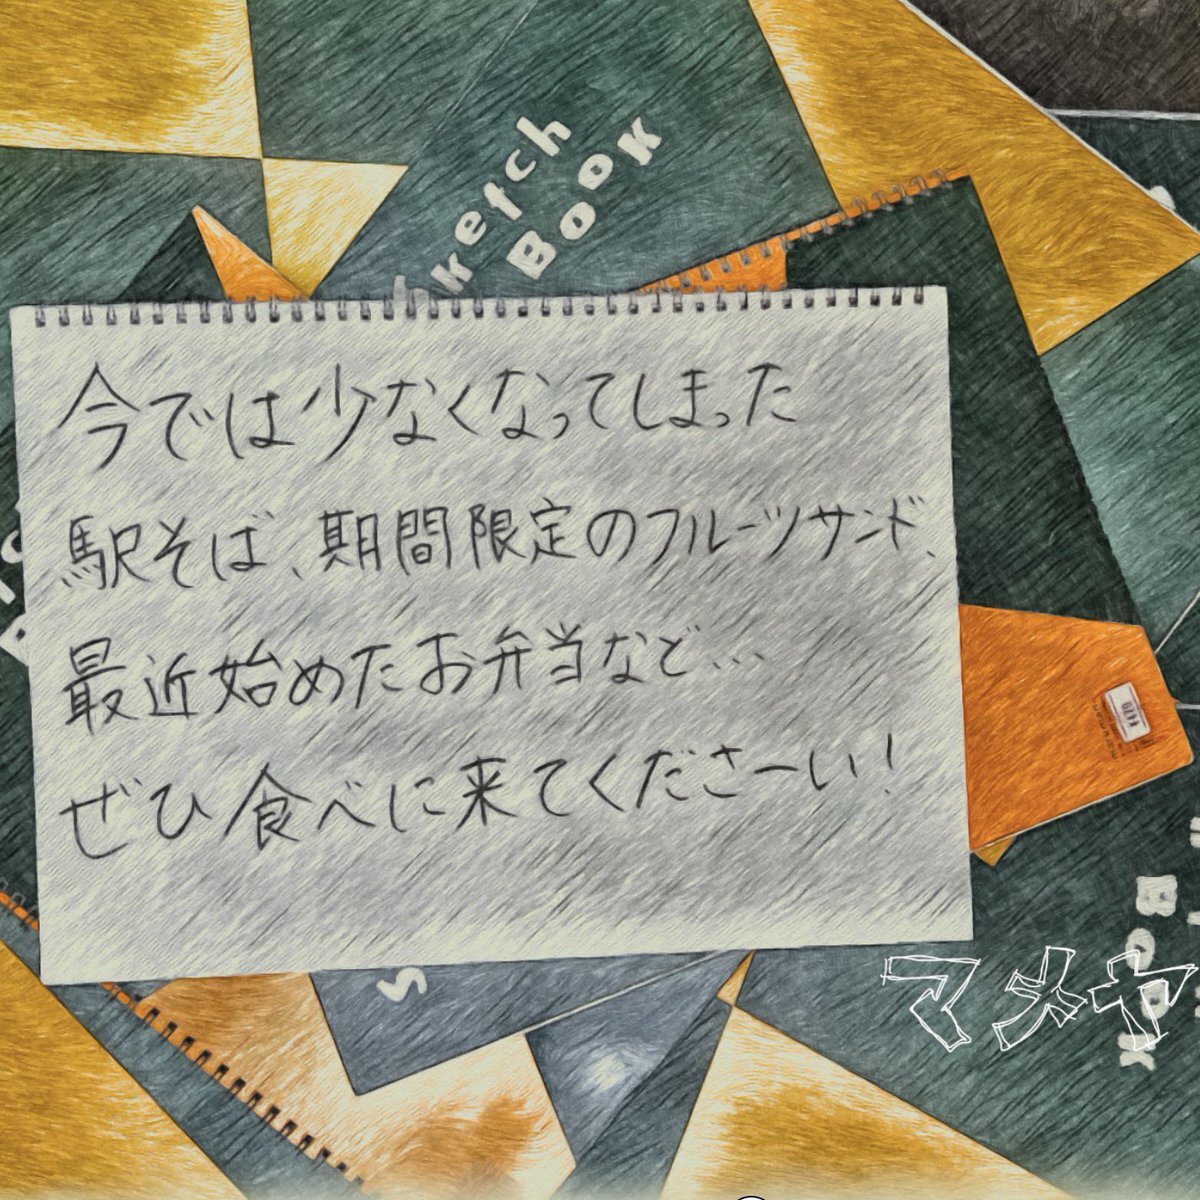 sketch
Book
今では少なくなってしまった
駅そば、期間限定のフルーツサンド、
最近始めたお弁当など…
ぜひ食べに来てくださーい!
マメヤ